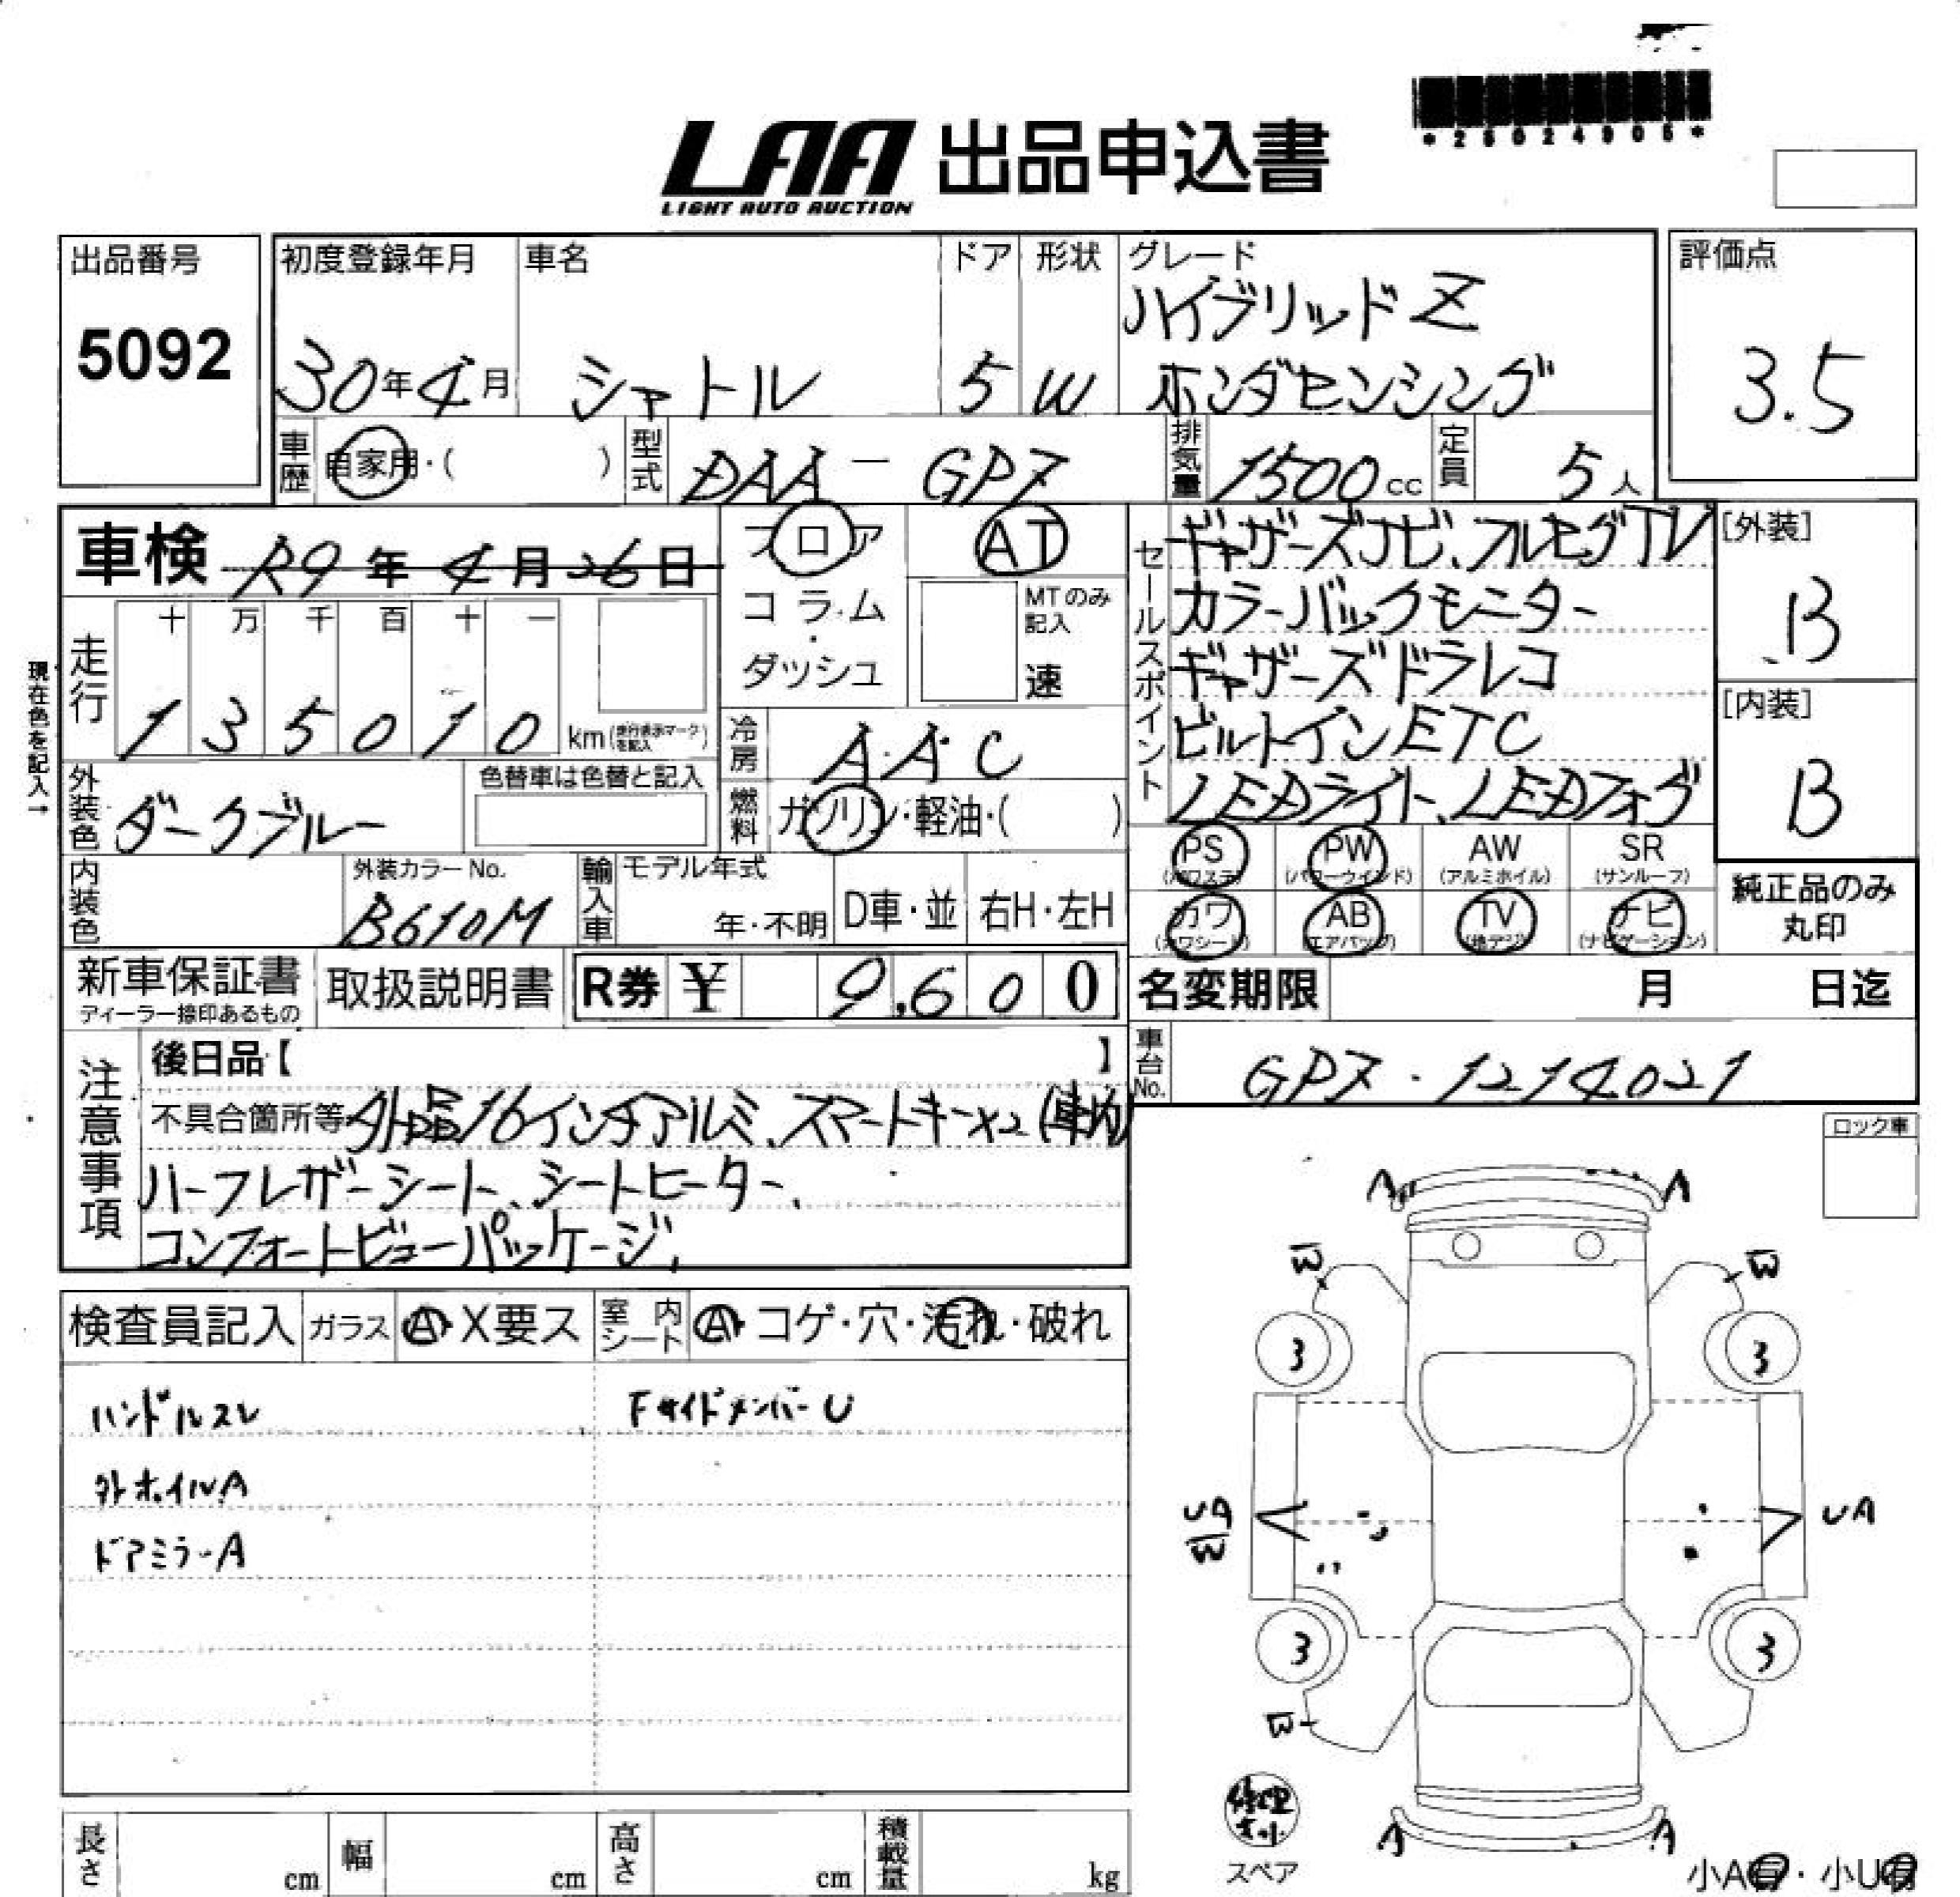 *25024905*
LAA 出品申込書
LIGHT AUTO AUCTION
出品番号
5092
初度登録年月
30年4月
車名
シャトル
ドア
5
形状
W
グレード
ハイブリッドZ
ホンダセンシング
評価点
3.5
車歴
自家用・( )
型式
DAA-GP7
排気量
1500cc
定員
5人
車検 R9年4月26日
フロア
コラム
・
ダッシュ
AT
MTのみ
記入
速
セールスポイント
ギャザーズナビ、フルセグTV
カラーバックモニター
ギャザーズドラレコ
ビルトインETC
LEDライト、LEDフォグ
[外装]
B
[内装]
B
現在色を記入→
走行
十 万 千 百 十 一
1 3 5 0 1 0 km(走行表示マークを記入)
冷房
A・A・C
外装色
ダークブルー
色替車は色替と記入
燃料
ガソリン・軽油・( )
PS
(パワステ)
PW
(パワーウインド)
AW
(アルミホイル)
SR
(サンルーフ)
カワ
(カワシート)
AB
(エアバッグ)
TV
(地デジ)
ナビ
(ナビゲーション)
純正品のみ
丸印
内装色
外装カラーNo.
B610M
輸入車
モデル年式
年・不明
D車・並
右H・左H
新車保証書
ディーラー捺印あるもの
取扱説明書
R券 ¥ 9,600
名変期限 月 日迄
車台No.
GP7-1214021
注意事項
後日品【 】
不具合箇所等 外品16インチアルミ、スマートキー×2(車内)
ハーフレザーシート、シートヒーター、
コンフォートビューパッケージ、
ロック車
検査員記入
ガラス
A・X要ス
室内シート
A・コゲ・穴・汚れ・破れ
ハンドルスレ
FサイドメンバーU
外ホイルA
ドアミラーA
A A
W W
3 3
UA
W
UA
3 3
W
A A
修理キット
スペア
小A有・小U有
長さ cm
幅 cm
高さ cm
積載量 kg